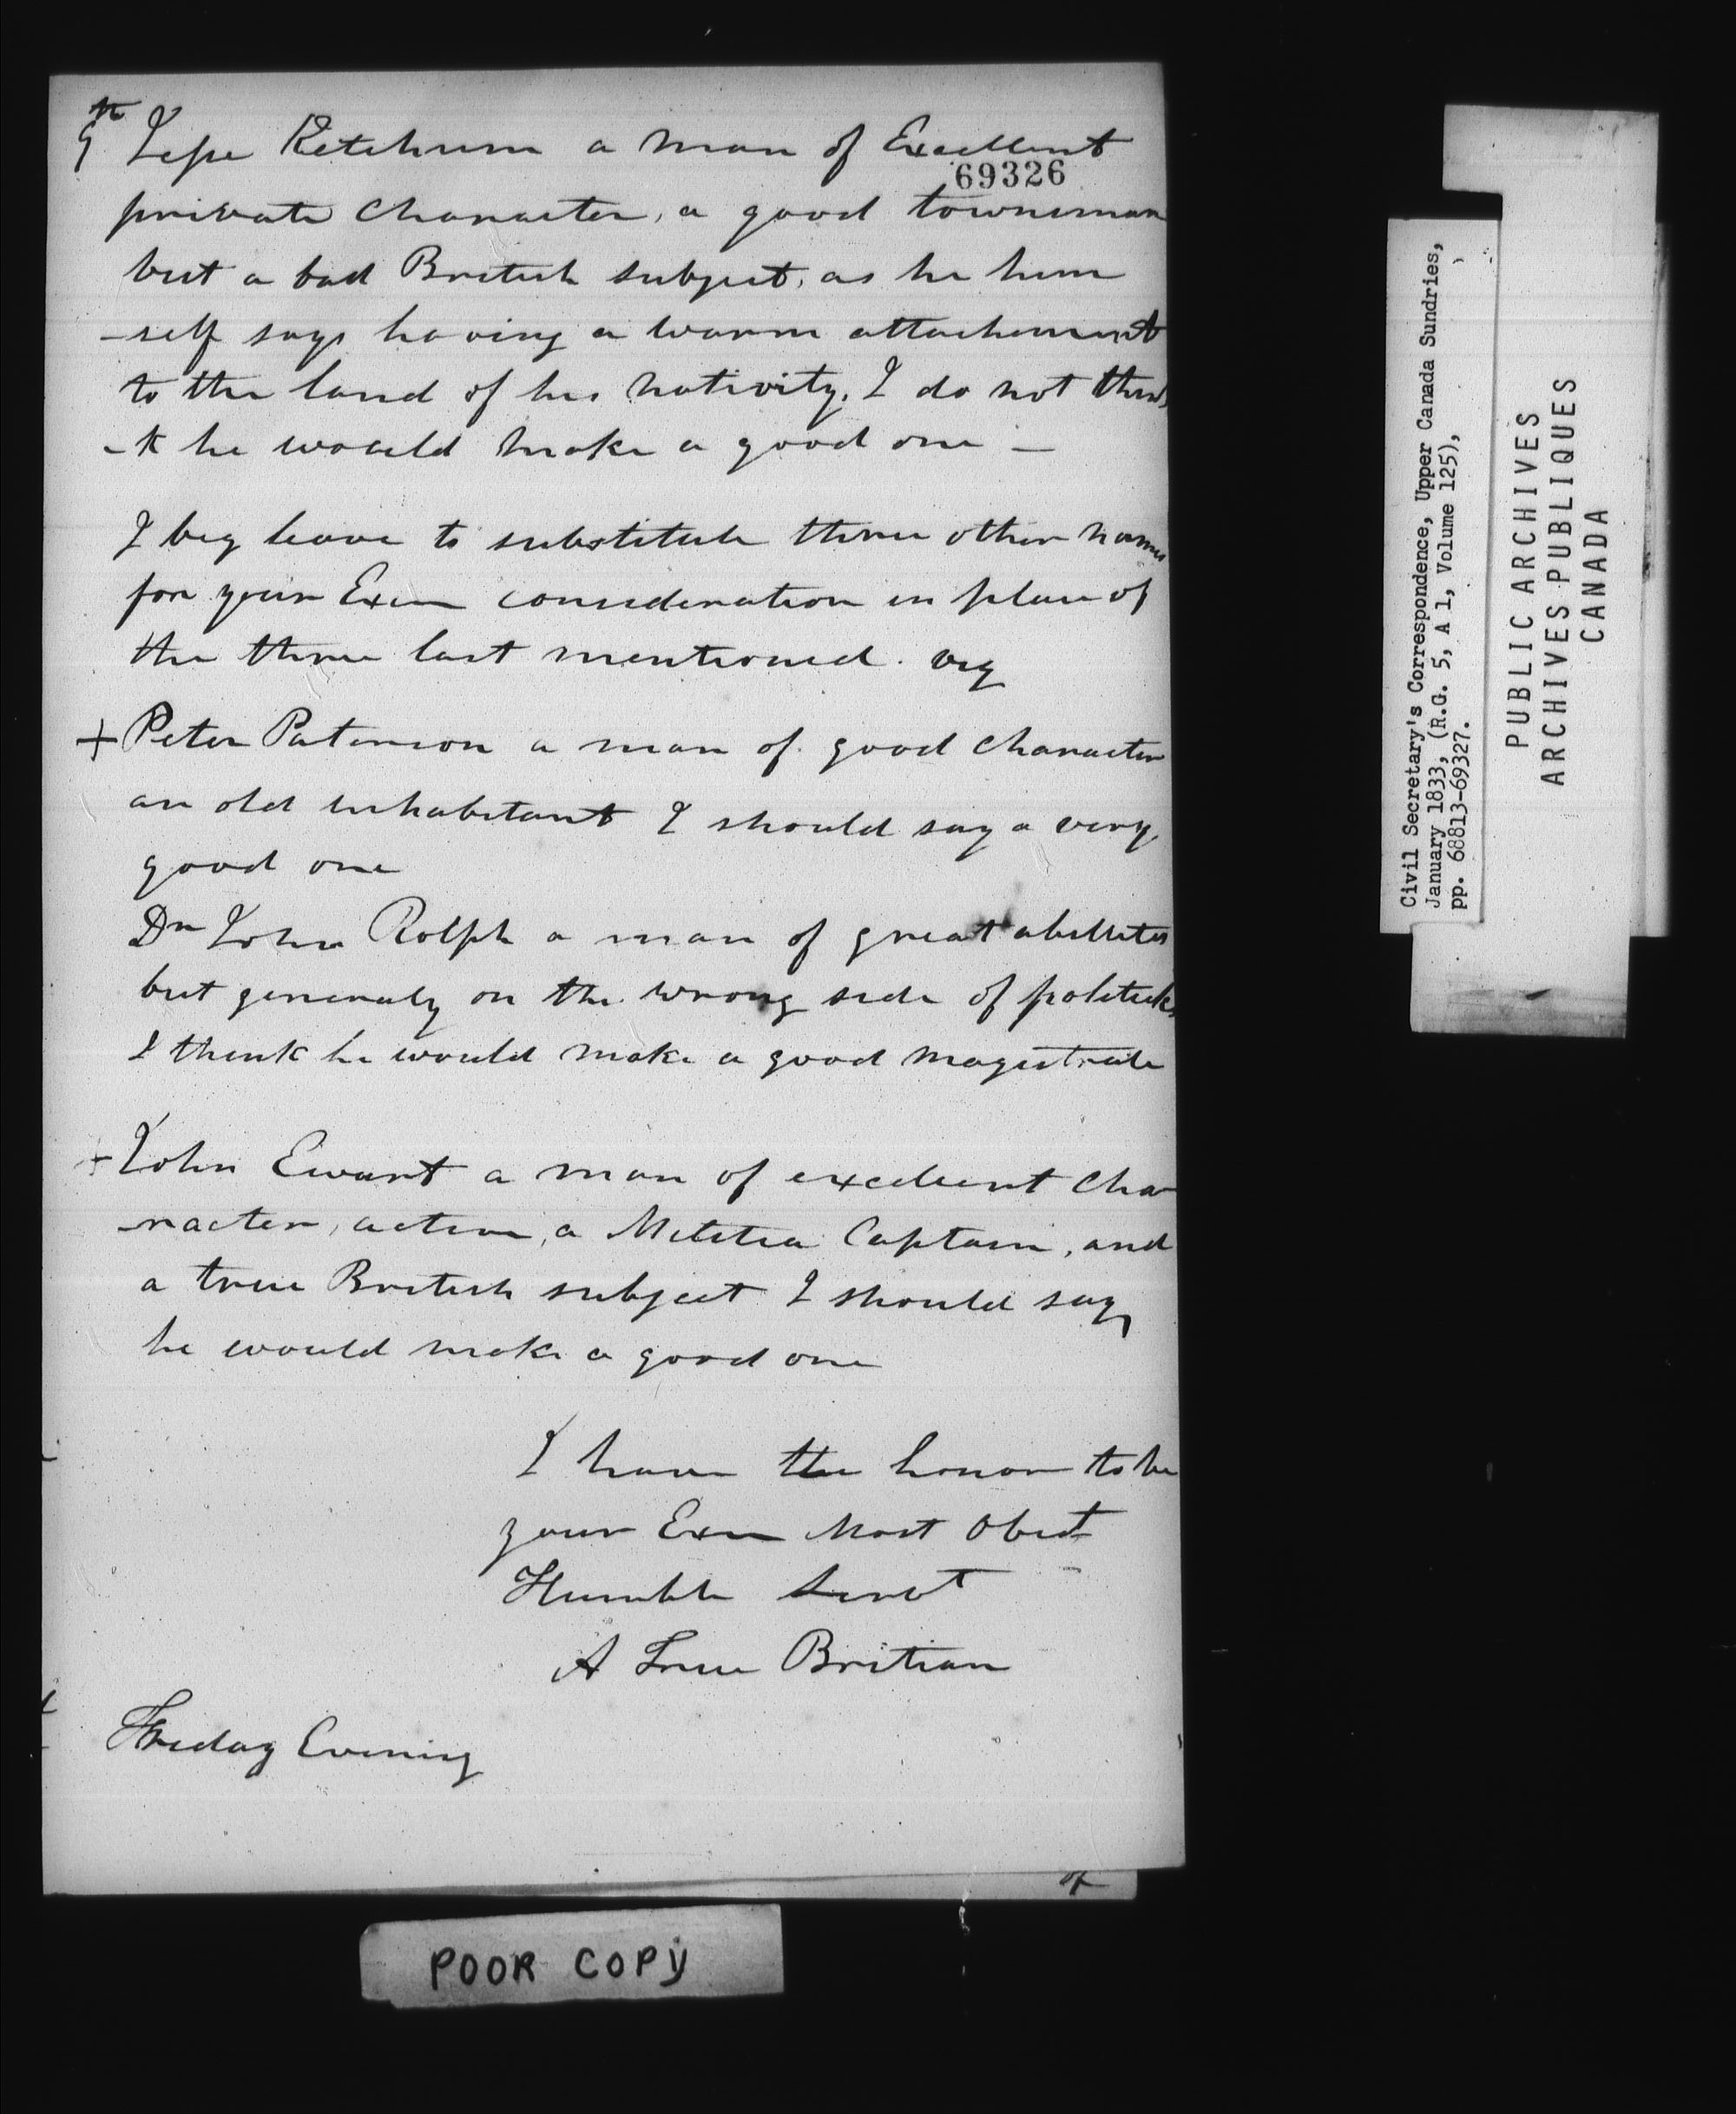 9th Jesse Ketchum a man of Excellent
69326
private Character, a good townsman
but a bad British subject, as he him
-self says having a warm attachment
to the land of his nativity. I do not thin
-k he would make a good one —
I beg leave to substitute three other names
for your Excn consideration in place of
the three last mentioned. viz
+ Peter Paterson a man of good Character
an old inhabitant I should say a very
good one
Dr John Rolph a man of great abillites
but generaly on the wrong side of politicks
I think he would make a good magistrate
+ John Ewart a man of excellent Cha
-racter, active, a Militia Captain, and
a true British subject I should say
he would make a good one
I have the honor to be
your Excn Most Obedt
Humble Servt
A True Britian
Friday Evening
of
POOR COPY
Civil Secretary's Correspondence, Upper Canada Sundries,
January 1833, (R.G. 5, A 1, Volume 125),
pp. 68813-69327.
PUBLIC ARCHIVES
ARCHIVES PUBLIQUES
CANADA